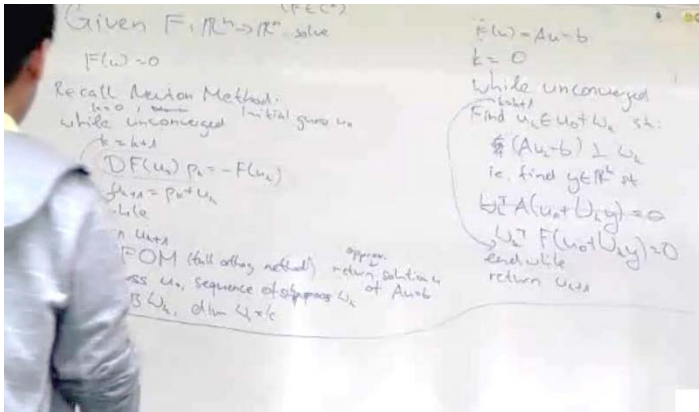 (F∈C¹)
Given F: ℝⁿ→ℝⁿ, solve
F(u)=0
Recall Newton Method:
k=0, initial guess u₀
while unconverged
k=k+1
DF(uₖ) pₖ = -F(uₖ)
uₖ₊₁ = pₖ+uₖ
uₖ₊₁
FOM (full orthog method) approx.
return solution
u₀, sequence of Wₖ of Au=b
Wₖ, dim Wₖ
F(u)=Au-b
k=0
while unconverged
k=k+1
Find uₖ∈u₀+Wₖ st.
(Auₖ-b) ⊥ Wₖ
ie. find y∈ℝᵏ st
Uₖᵀ A(u₀+Uₖy)=0
Uₖᵀ F(u₀+Uₖy)=0
endwhile
return uₖ₊₁